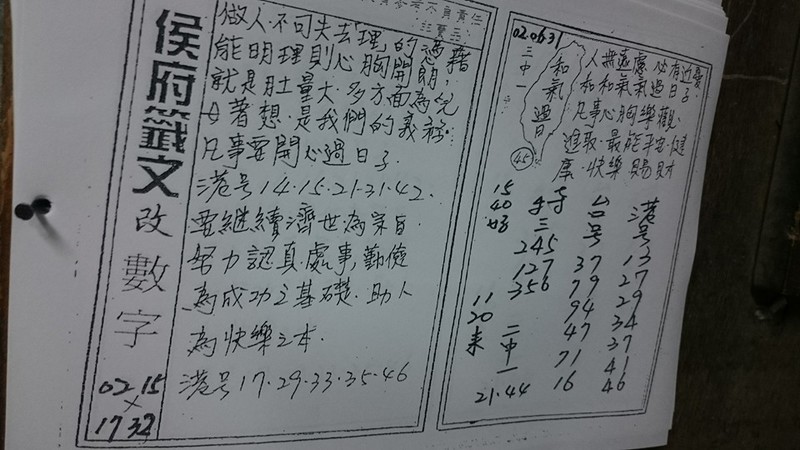 侯府籤文
改數字
02 15
×
17 32
做人不可失去「理」的憑藉
能明理則心胸開朗，
就是肚量大．多方面為
著想．是我們的義務．
凡事要開心過日子．
港号14．15．21．31．42．
要繼續濟世為宗旨
努力認真．處事，勤儉
為成功之基礎．助人
為快樂之本．
港号17．29．33．35．46
020631
三中一
和氣過日
45
人無遠慮 必有近憂
和和氣氣過日子
凡事心胸樂觀
進取．最能平安．健
康．快樂賜財
港号
13
27
29
34
37
41
46
台号
37
79
94
47
71
16
三
245
127
356
二中一
21．44
15
40
11
20
来